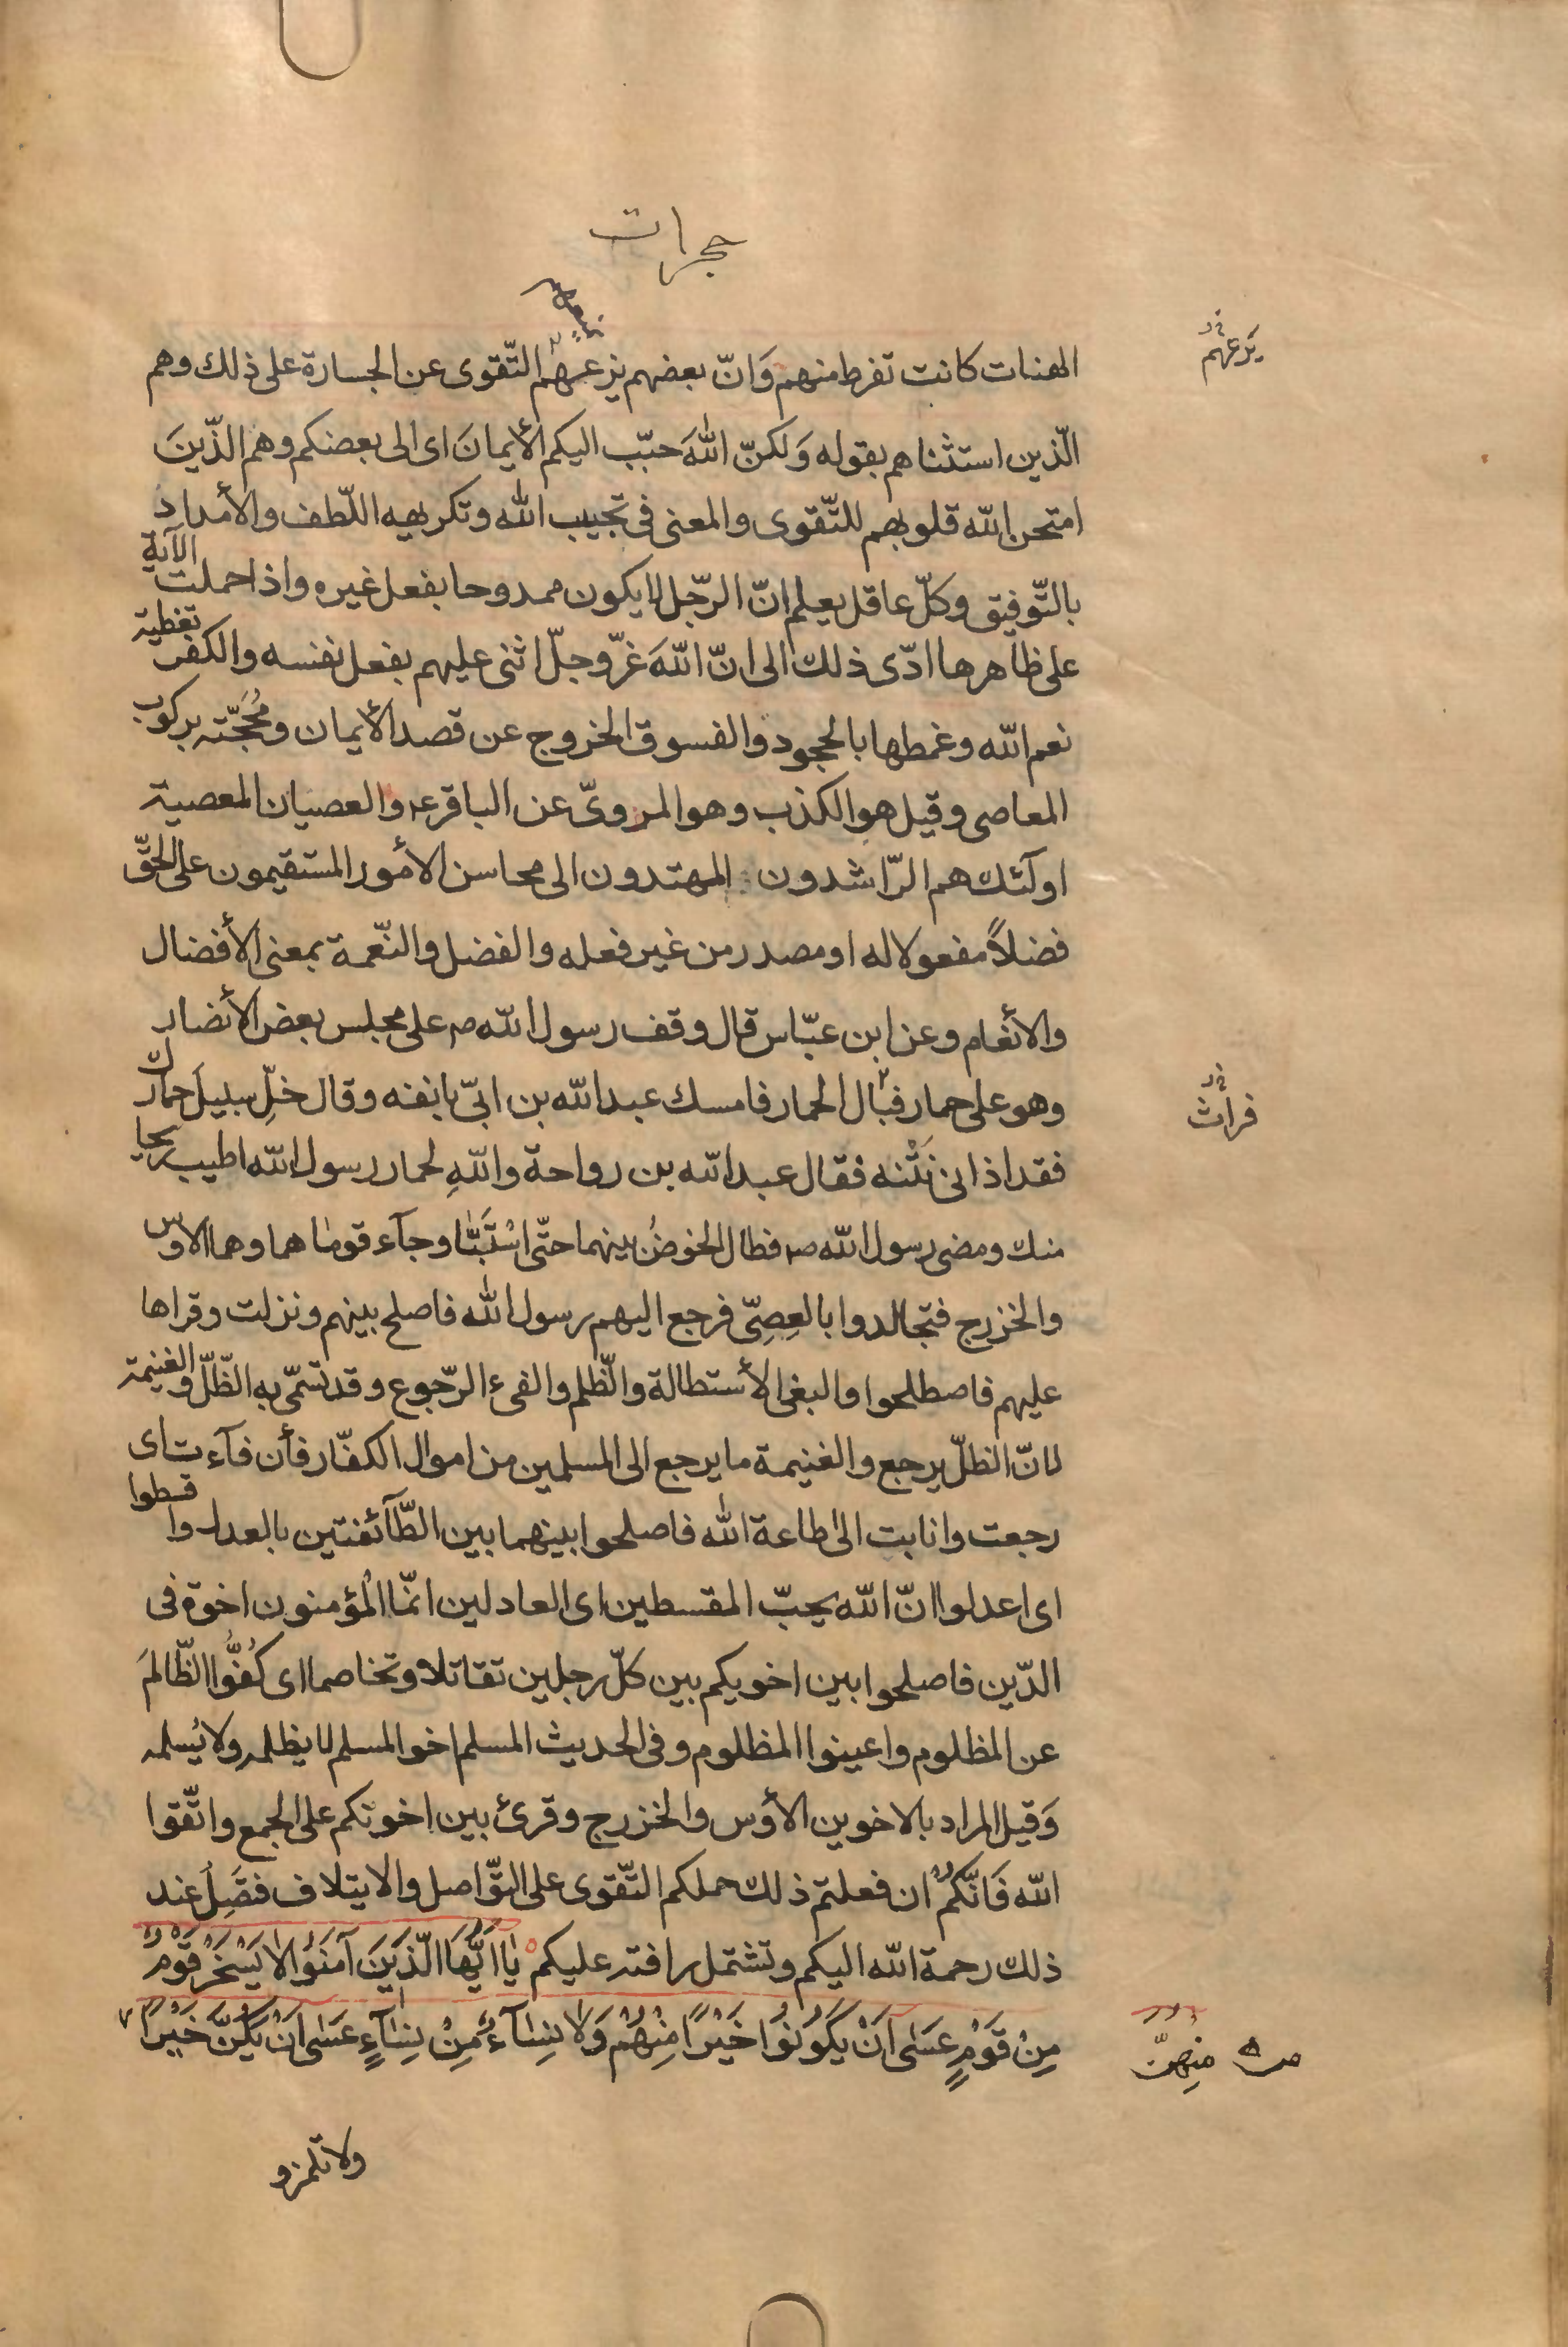 حجرات
الهنات كانت تفرط منهم وَانّ بعضهم يزعهم التّقوى عن الجسارة على ذلك وهم
يَزعهم
الّذين استثناهم بقوله وَلكنّ اللهَ حبّب اليكم الأيمانَ اى الى بعضكم وهم الذّينَ
امتحن الله قلوبهم للتّقوى والمعنى فى تحبيب الله وتكريهه اللّطف والأمداد
بالتّوفيق وكلّ عاقل يعلم انّ الرّجل لا يكون ممدوحا بفعل غيره واذا حملت الآية
على ظاهرها ادّى ذلك الى انّ اللهَ عزّ وجلّ اثنى عليهم بفعل نفسه والكفر تغطية
نعم الله وغمطها بالحجود والفسوق الخروج عن قصد الأيمان ومُحَجّته بركوب
المعاصى وقيل هو الكذب وهو المروىّ عن الباقر ع والعصيان المعصية
اولٓئك هم الرّاشدون المهتدون الى محاسن الأمور المستقيمون على الحقّ
فضلاً مفعولا له او مصدر من غير فعله والفضل والنّعمة بمعنى الأفضال
والأنعام وعن ابن عبّاس قال وقف رسول الله ص على مجلس بعض الأنصار
وهو على حمار فبال الحمار فامسك عبدالله بن ابىّ بانفه وقال خلِّ سبيلَ حمارك
فراث
فقد اذانى نَتْنه فقال عبدالله بن رواحة واللهِ لحمار رسول الله اطيب ريحا
منك ومضى رسول الله ص فطال الخوضُ بينهما حتّى اسْتَبّٰا وجآء قومٰاهما وهما الاوس
والخزرج فتجالدوا بالعِصِىّ فرجع اليهم رسول الله فاصلح بينهم ونزلت وقراها
عليهم فاصطلحوا والبغى الأستطالة والّظلم والفىء الرّجوع وقد تسمّى به الظّلّ والغنيمة
لانّ الظلّ يرجع والغنيمة ما يرجع الى المسلمين من اموال الكفّار فأن فآءت اى
رجعت وانابت الى طاعة الله فاصلحوا بينهما بين الطّآئفتين بالعدل واقسطوا
اى اعدلوا انّ الله يحبّ المقسطين اى العادلين انّما المُؤمنون اخوة فى
الدّين فاصلحوا بين اخويكم بين كلّ رجلين تقاتلا وتخاصما اى كُفّوا الظّالمَ
عن المظلوم واعينوا المظلوم وفى الحديث المسلم اخو المسلم لا يظلمه ولا يُسلمه
وَقيل المراد بالاخوين الأوس والخزرج وقرئ بين اخوتكم على الجمع واتّقوا
الله فَانّكم ان فعلتم ذلك حملكم التّقوى على التّواصل والايتلاف فتصِلُ عند
ذلك رحمة الله اليكم وتشتمل رافته عليكم يٰا ايُّهَا الّذينَ آمَنوُا لا يَسْخَرْ قَوْمٌ
مِنْ قَوْمٍ عَسٰى اَنْ يَكوُنوُا خَيْرًا مِنْهُمْ وَلا نِسٰآءٌ مِنْ نِسٰآءٍ عَسٰى اَنْ يَكُنَّ خَيْرًا
منهنّ
ولا تلمزو